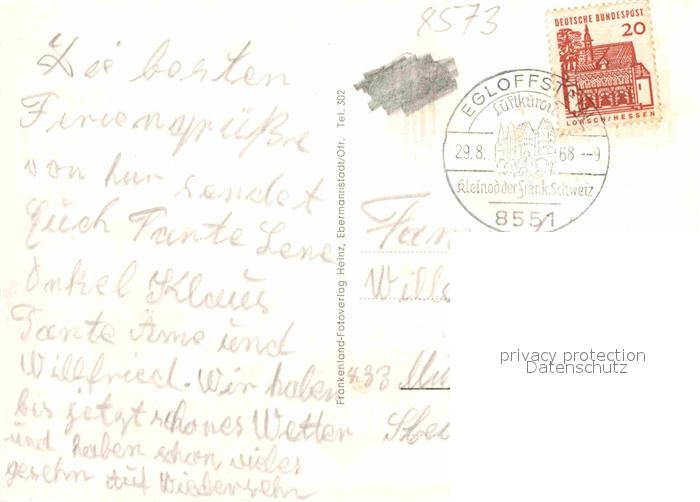 8573
Die besten
Feriengrüße
von hier sendet
Euch Tante Lene
Onkel Klaus
Tante Änne und
Willfried. Wir haben
bis jetzt schönes Wetter
und haben schon vieles
gesehn auf Wiedersehn
Frankenland-Fotoverlag Heinz, Ebermannstadt/Ofr. Tel. 302
DEUTSCHE BUNDESPOST
20
LORSCH/HESSEN
Luftkurort
29.8. 68 --9
Kleinod der Fränk. Schweiz
8551
433
privacy protection
Datenschutz